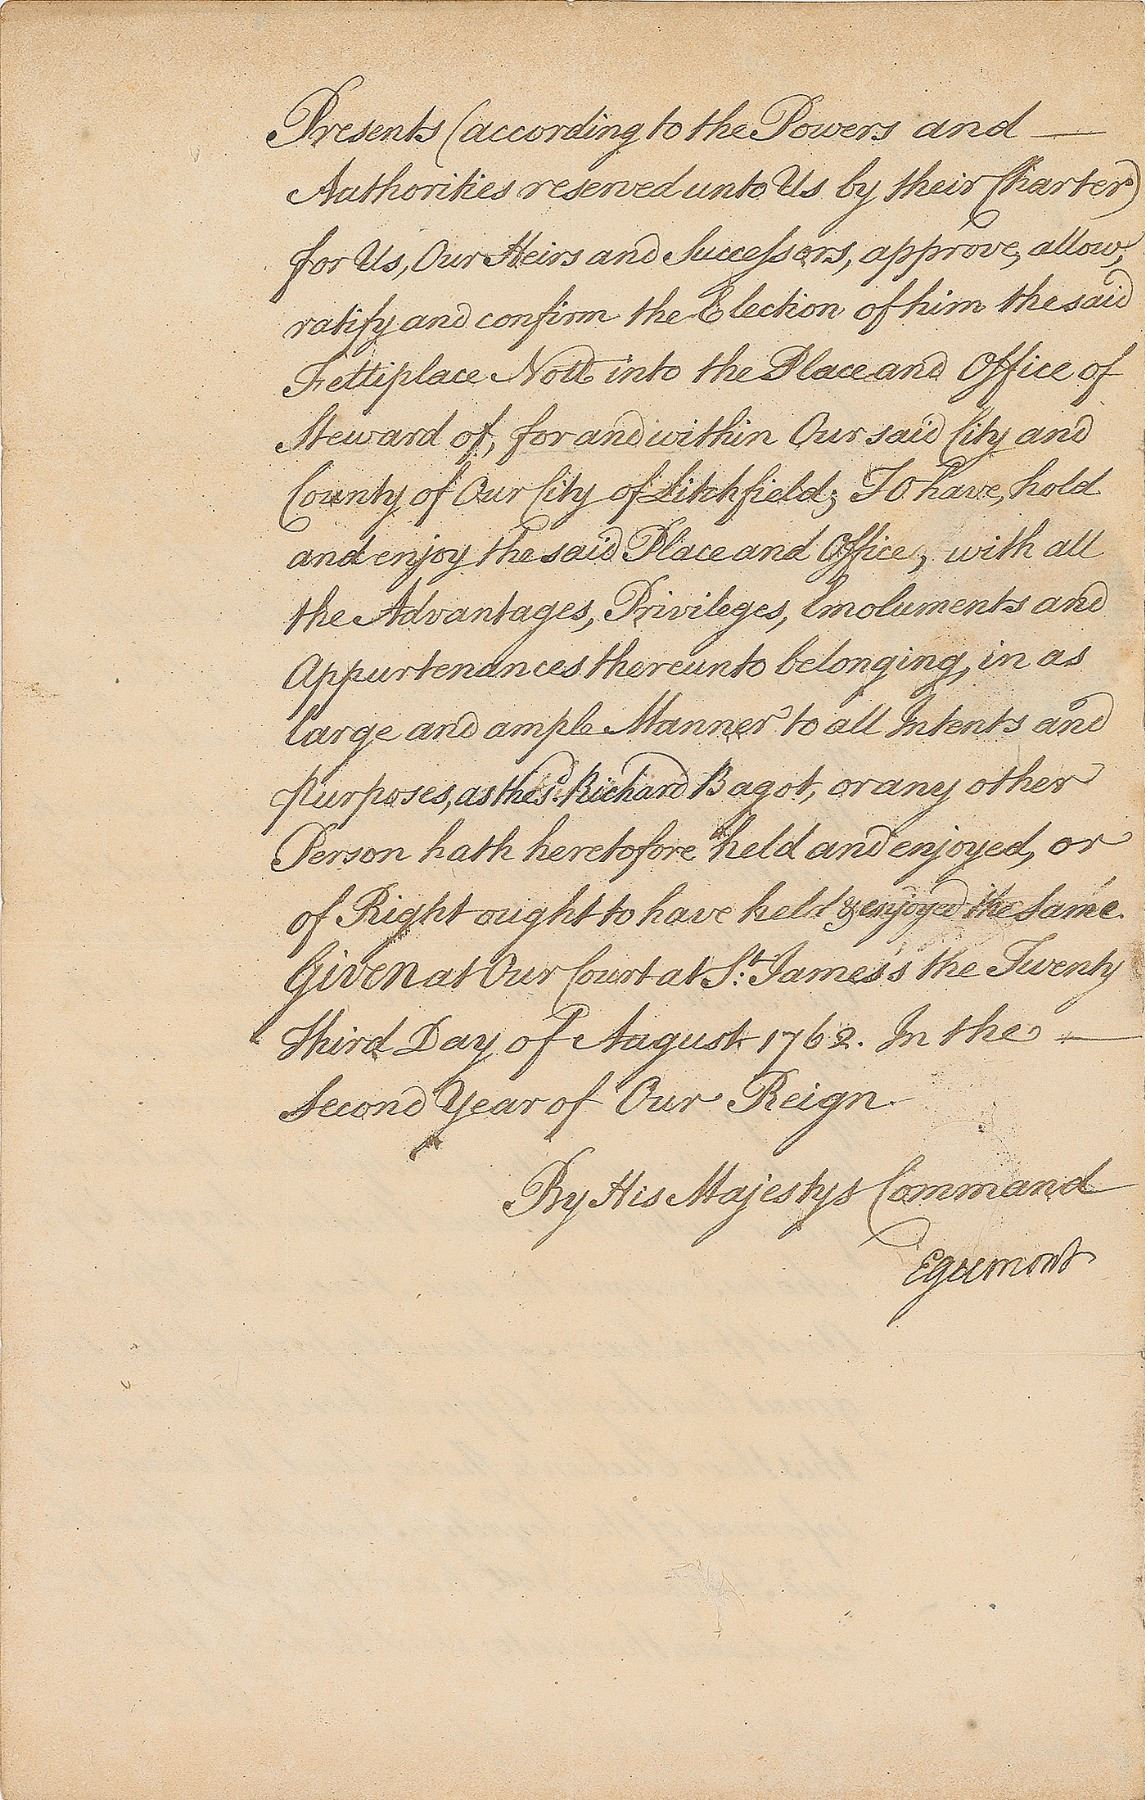 Presents (according to the Powers and —
Authorities reserved unto Us by their Charter)
for Us, Our Heirs and Successors, approve, allow,
ratify and confirm the Election of him the said
Fettiplace Nott into the Place and Office of
Steward of, for and within Our said City and
County of Our City of Litchfield; To have, hold
and enjoy the said Place and Office, with all
the Advantages, Privileges, Emoluments and
Appurtenances thereunto belonging, in as
large and ample Manner to all Intents and
Purposes, as the sd. Richard Bagot, or any other
Person hath heretofore held and enjoyed, or
of Right ought to have held & enjoyed the same.
Given at Our Court at St. James's the Twenty
third Day of August 1762. In the —
Second Year of Our Reign.
By His Majestys Command
Egremont